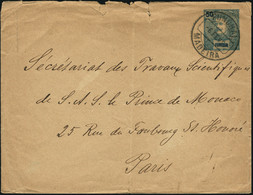 50
MADEIRA
Sécrétariat des Travaux Scientifiques
de S.A.S. le Prince de Monaco
25 Rue du Faubourg St. Honoré
Paris